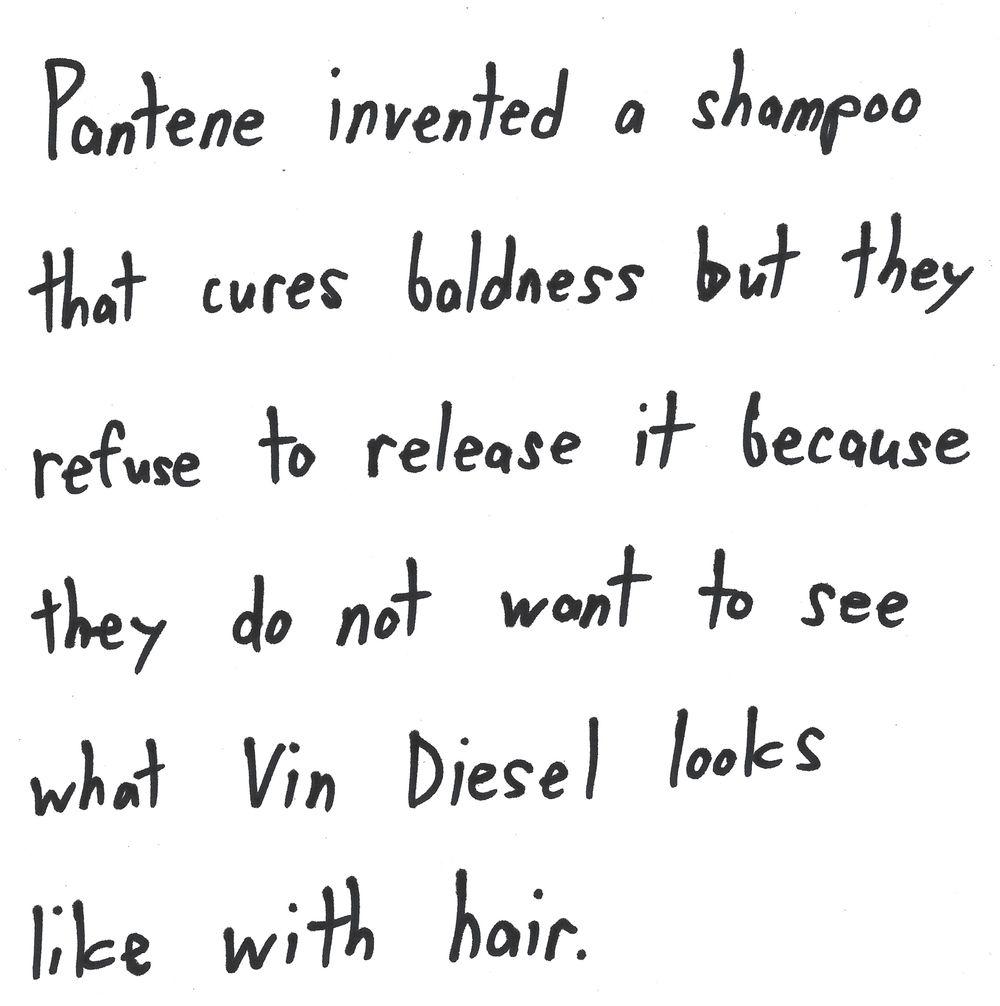 Pantene invented a shampoo
that cures baldness but they
refuse to release it because
they do not want to see
what Vin Diesel looks
like with hair.